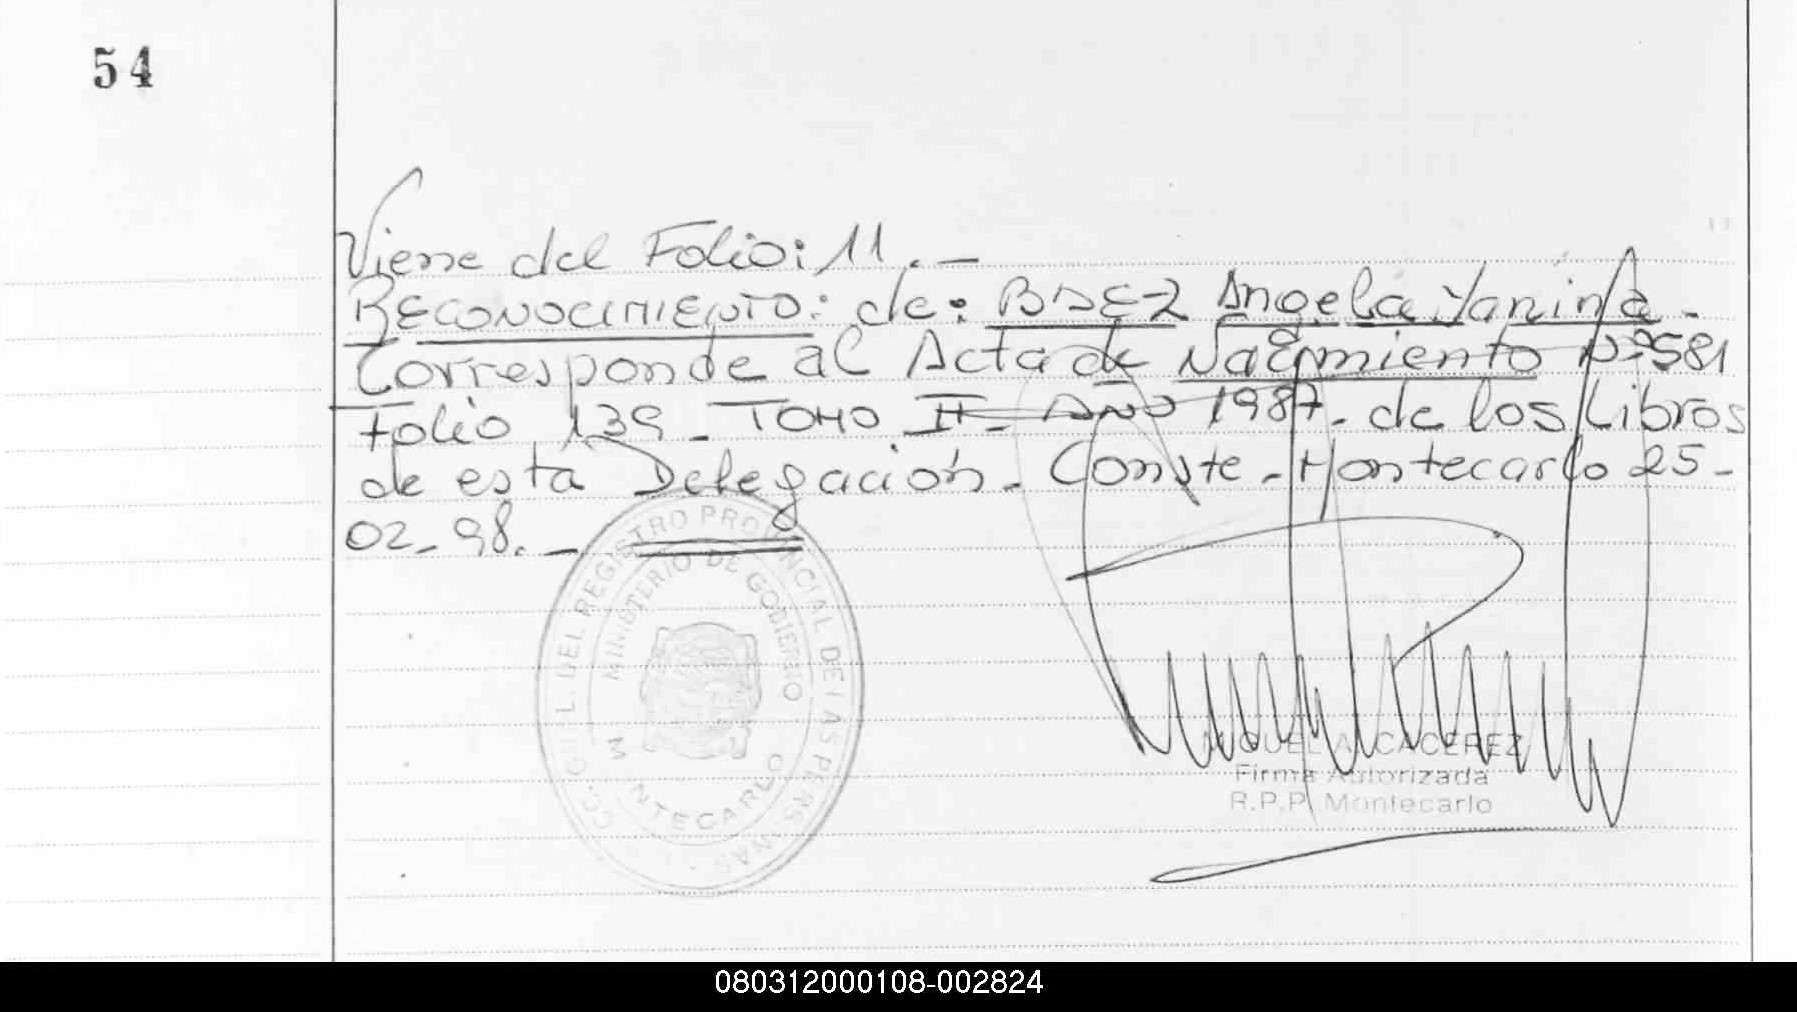 54
Viene del Folio: 11.-
RECONOCIMIENTO: de: BAEZ Angela Yanina.-
Corresponde al Acta de Nacimiento Nº 581
Folio 139 - TOMO II - AÑO 1987. de los Libros
de esta Delegación. Conste.- Montecarlo 25-
02-98.-
REGISTRO PROVINCIAL DE LAS PERSONAS
MINISTERIO DE GOBIERNO
MONTECARLO
MIGUEL A. CACEREZ
Firma Autorizada
R.P.P. Montecarlo
080312000108-002824